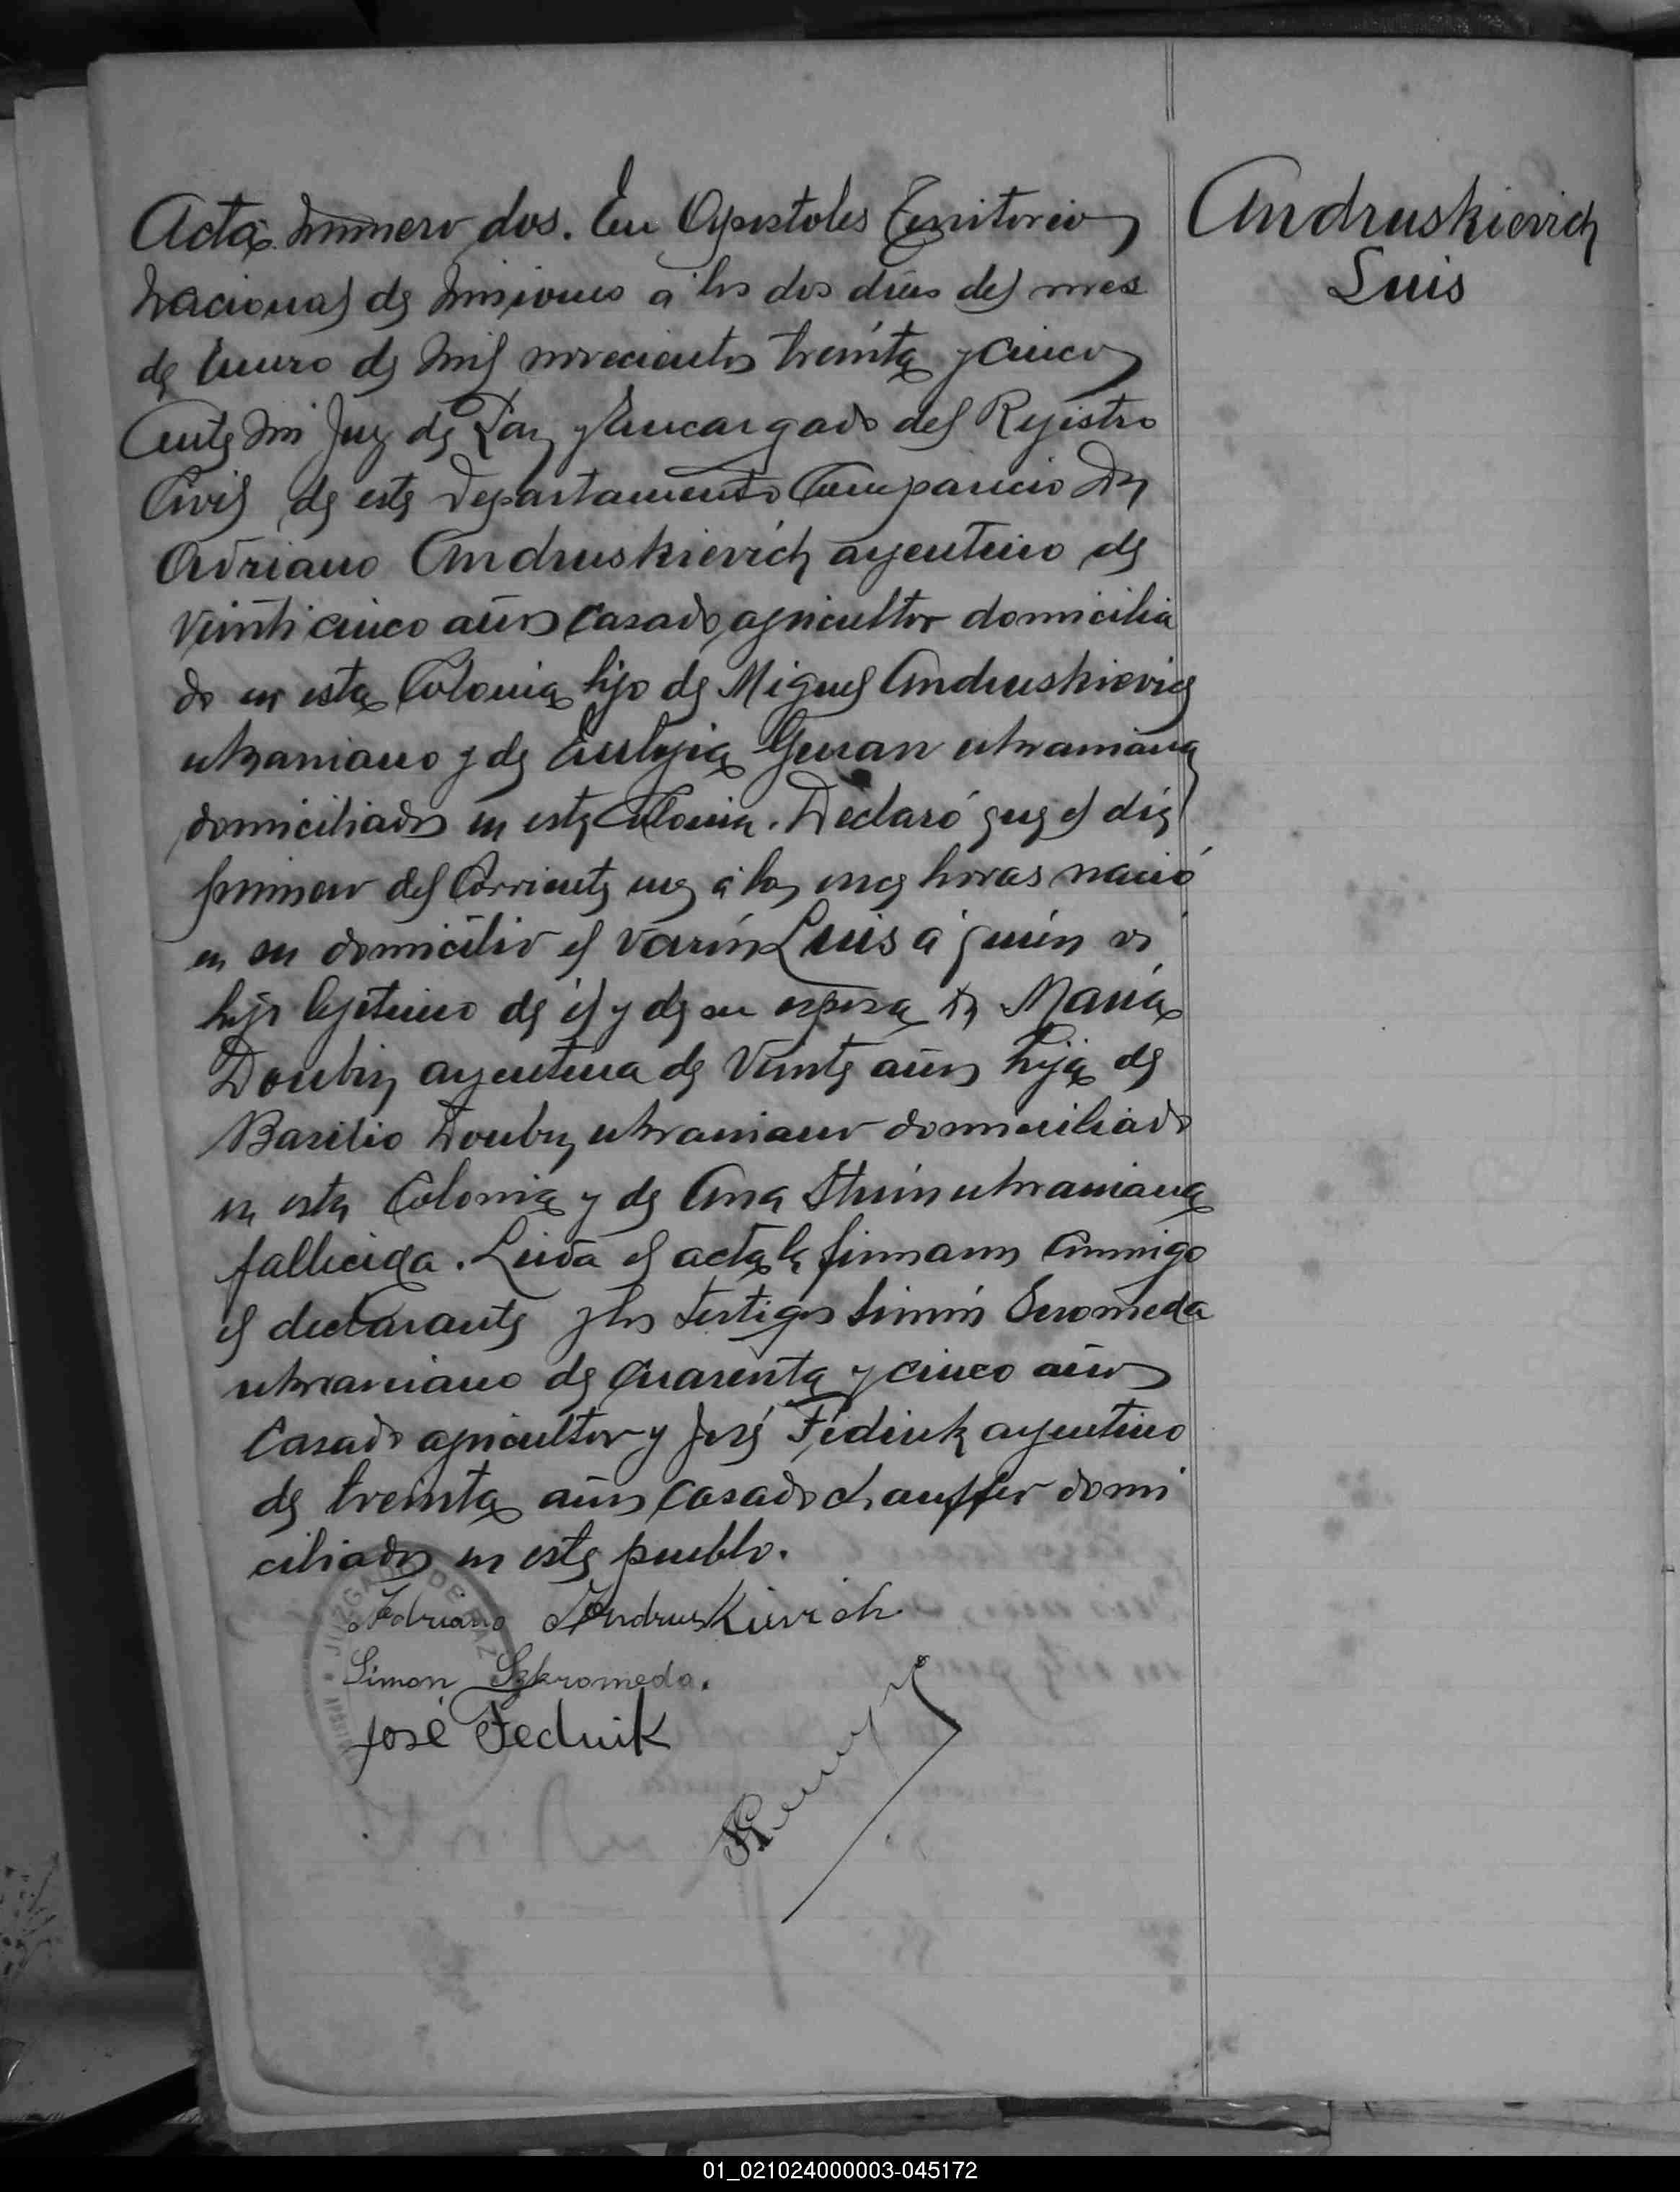 Acta número dos. En Apostoles Territorio
Nacional de Misiones a los dos días del mes
de Enero de Mil novecientos treinta y cinco
Ante Mi Juez de Paz y Encargado del Rejistro
Civil de este Departamento Compareció Dn
Adriano Andruskievich argentino de
veinticinco años casado agricultor domicilia
do en esta Colonia hijo de Miguel Andruskievich
ukraniano y de ukraniana
domiciliados en esta Colonia. Declaró que el día
primero del Corriente mes a las once horas nació
en su domicilio el varón Luis a quién es
hijo lejitimo de él y de su esposa Da María
argentina de Veinte años hija de
Basilio ukraniano domiciliado
en esta Colonia y de Ana ukraniana
fallecida. Leída el acta la firmaron conmigo
el declarante y los testigos Simón Scromeda
ukraniano de Cuarenta y cinco años
Casado agricultor y José Fediuk argentino
de treinta años casado chauffer domi
ciliados en este pueblo.
Adriano Andruskievich
Simon Szkromeda.
José Fediuk
JUZGADO DE PAZ
Andruskievich
Luis
01_021024000003-045172